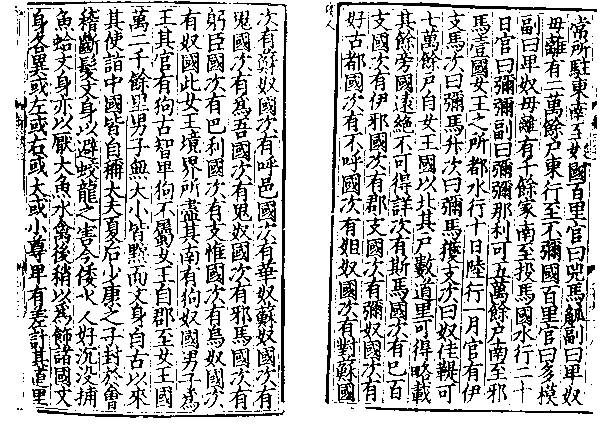 常所駐東南至奴國百里官曰兕馬觚副曰卑奴
母離有二萬餘戶東行至不彌國百里官曰多模
副曰卑奴母離有千餘家南至投馬國水行二十
日官曰彌彌副曰彌彌那利可五萬餘戶南至邪
馬壹國女王之所都水行十日陸行一月官有伊
支馬次曰彌馬升次曰彌馬獲支次曰奴佳鞮可
七萬餘戶自女王國以北其戶數道里可得略載
其餘旁國遠絕不可得詳次有斯馬國次有已百
支國次有伊邪國次有郡支國次有彌奴國次有
好古都國次有不呼國次有姐奴國次有對蘇國
次有蘇奴國次有呼邑國次有華奴蘇奴國次有
鬼國次有為吾國次有鬼奴國次有邪馬國次有
躬臣國次有巴利國次有支惟國次有烏奴國次
有奴國此女王境界所盡其南有狗奴國男子為
王其官有狗古智卑狗不屬女王自郡至女王國
萬二千餘里男子無大小皆黥面而文身自古以來
其使詣中國皆自稱大夫夏后少康之子封於會
稽斷髮文身以避蛟龍之害今倭水人好沉沒捕
魚蛤文身亦以厭大魚水禽後稍以為飾諸國文
身各異或左或右或大或小尊卑有差計其道里